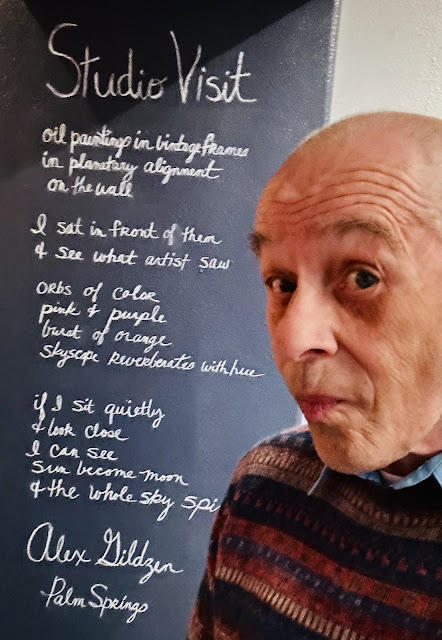 Studio Visit
oil paintings in vintage frames
in planetary alignment
on the wall
I sat in front of them
& see what artist saw
orbs of color
pink & purple
burst of orange
skyscape reverberates with hue
if I sit quietly
& look close
I can see
sun become moon
& the whole sky spi
Alex Gildzen
Palm Springs